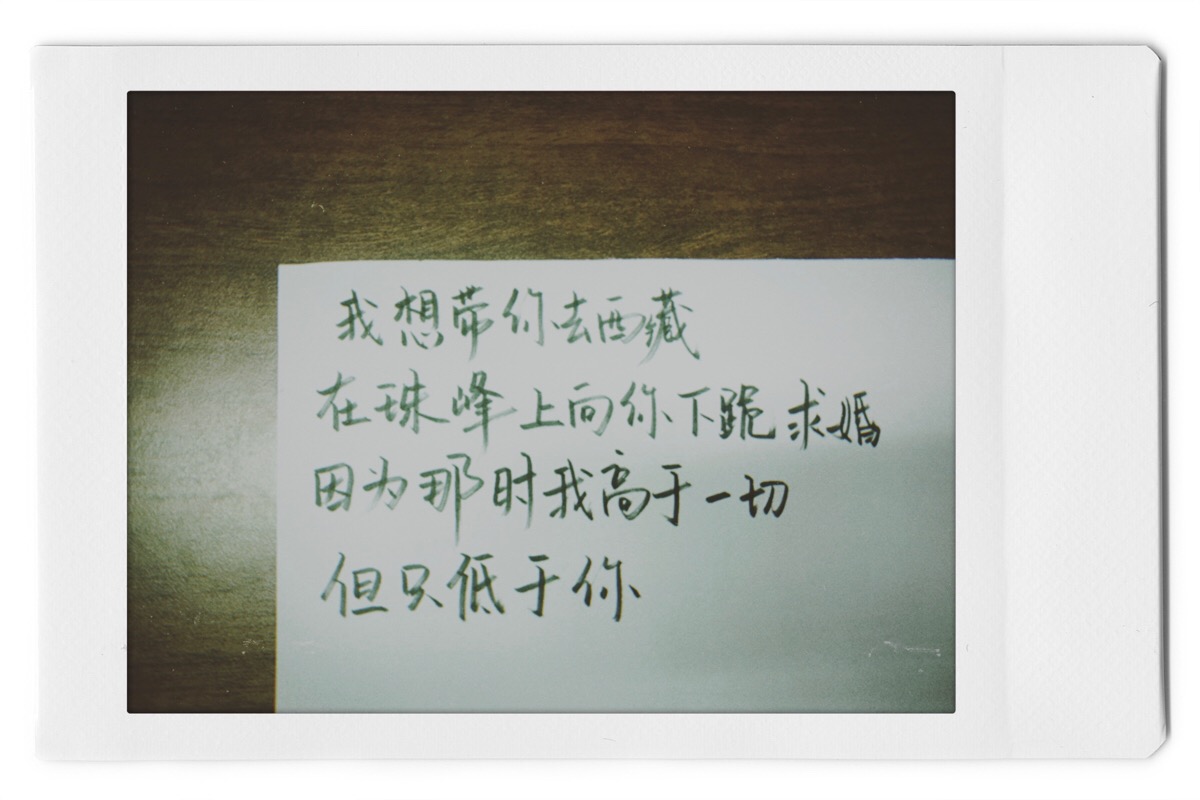 我想带你去西藏
在珠峰上向你下跪求婚
因为那时我高于一切
但只低于你